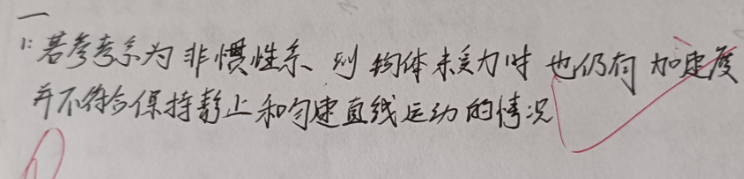 一
1: 若参考系为非惯性系、则物体未受力时也仍有加速度
并不符合保持静止和匀速直线运动的情况